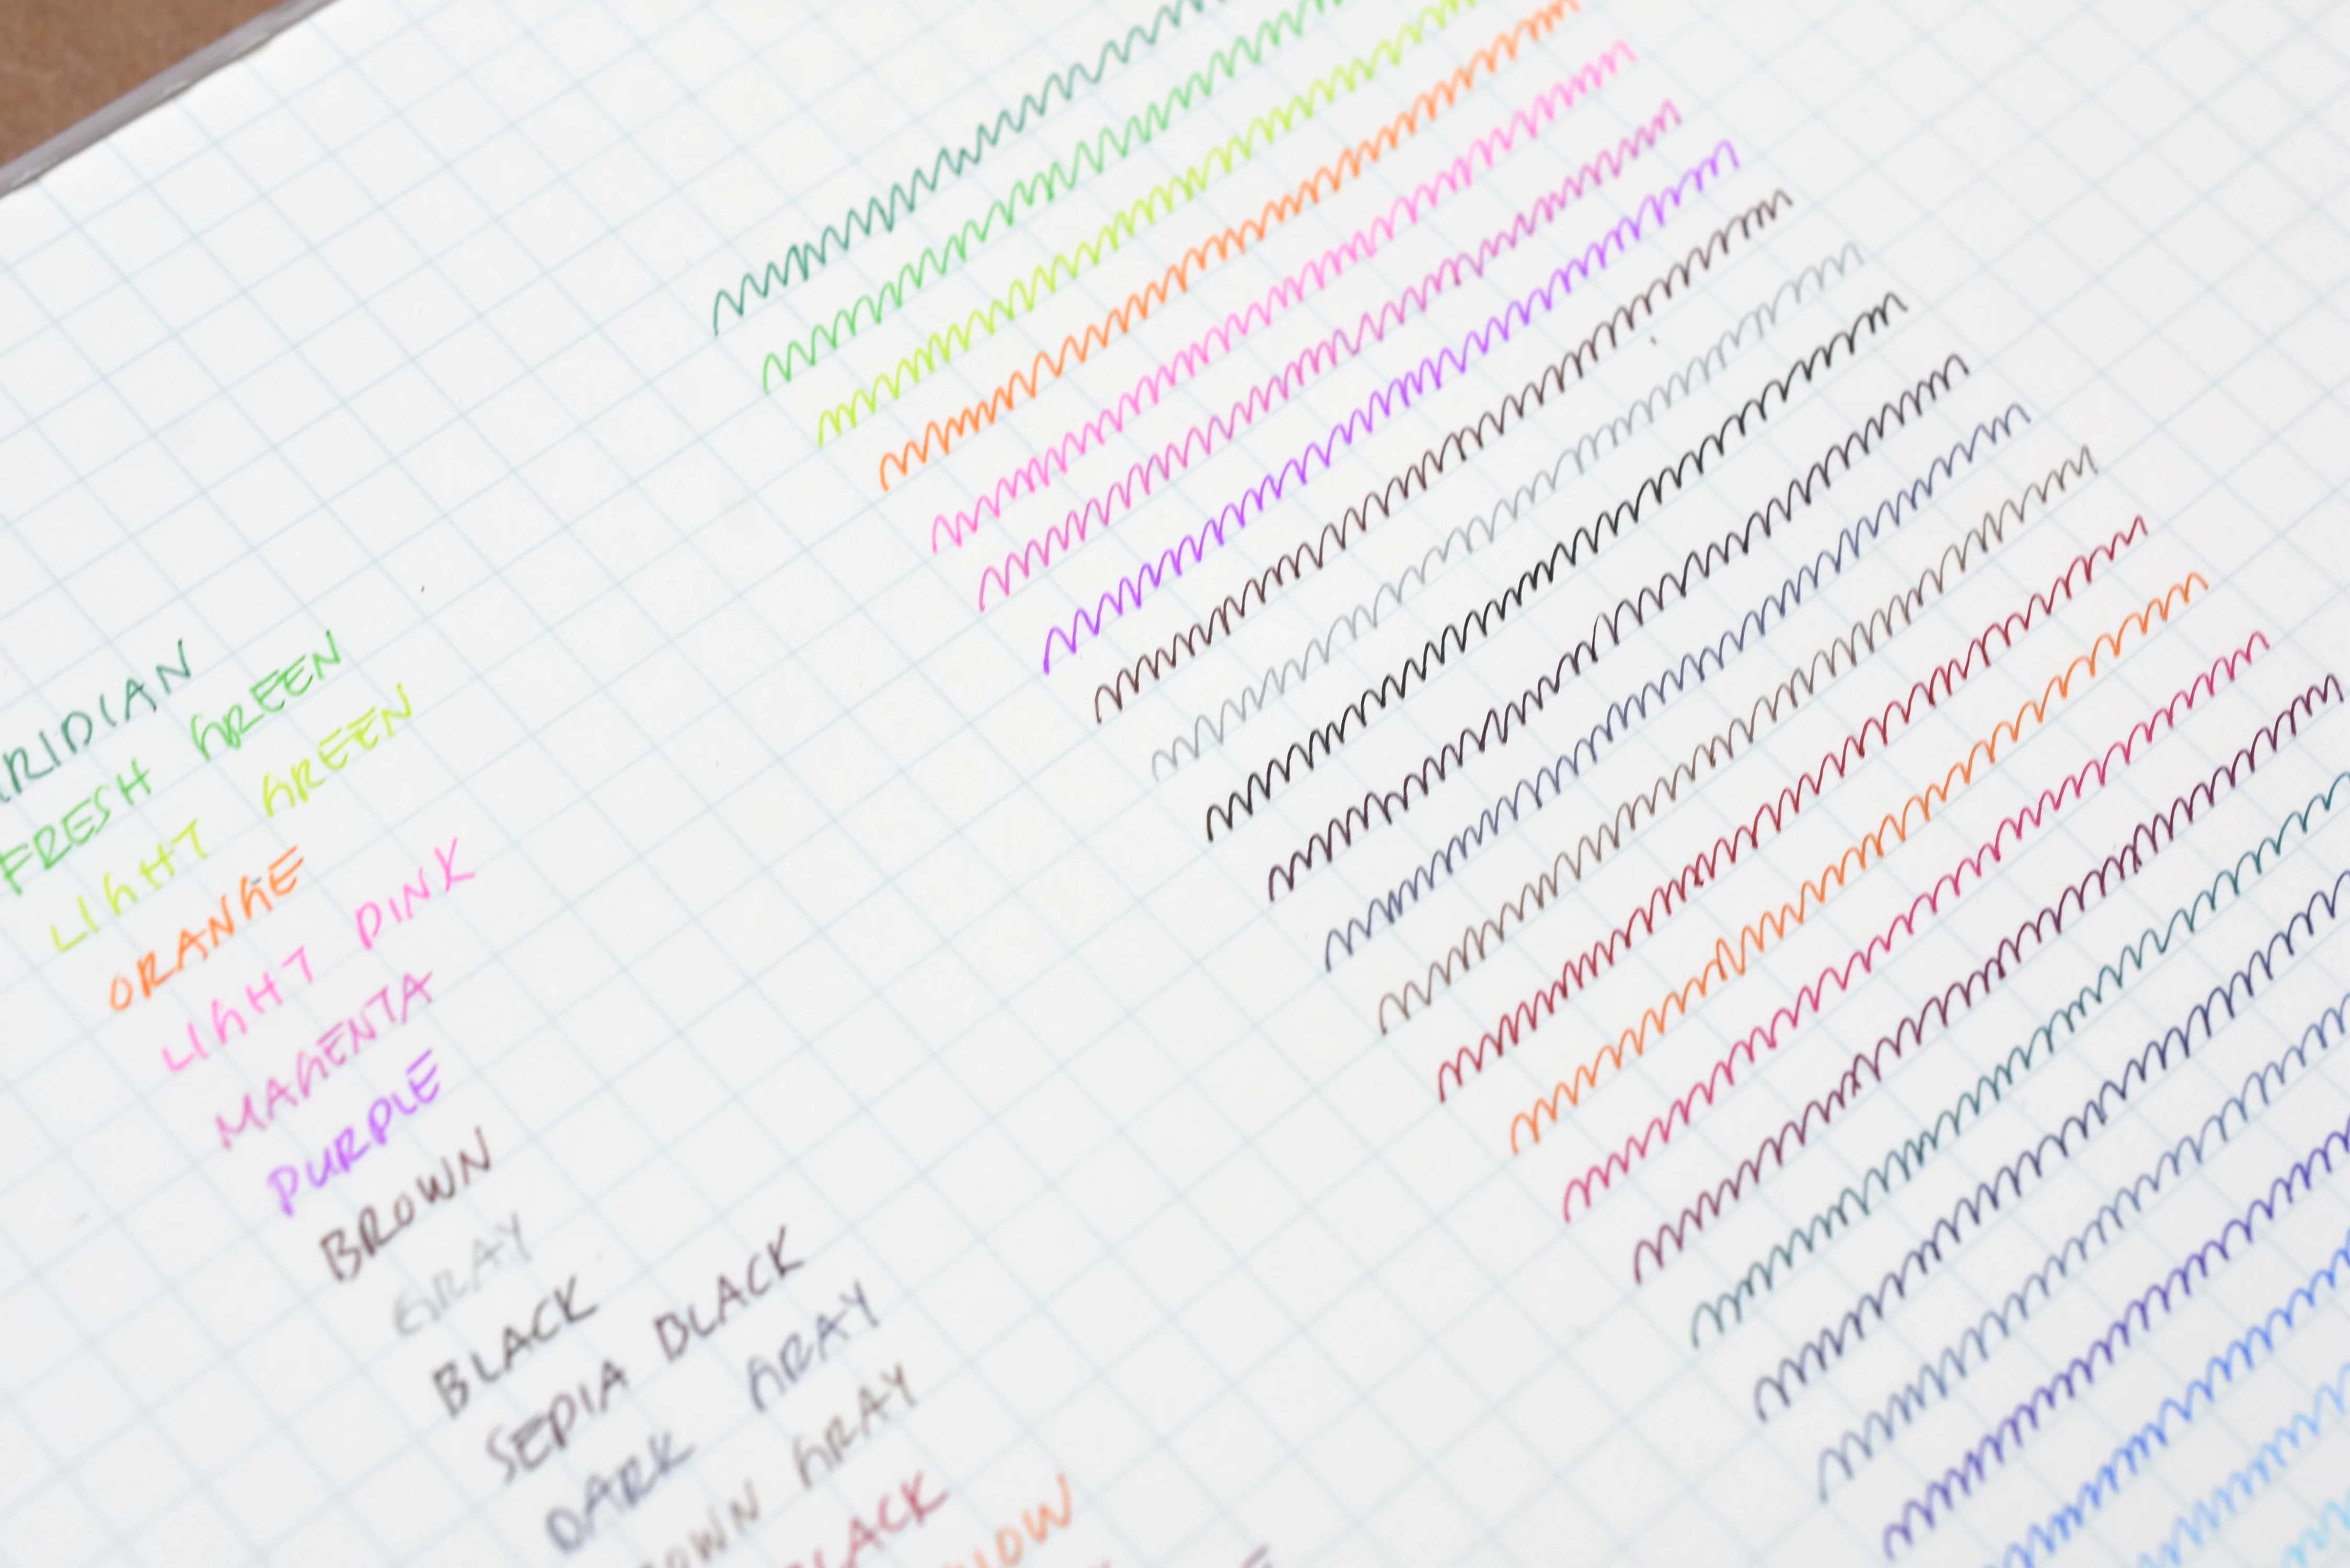 RIDIAN
FRESH GREEN
LIGHT GREEN
ORANGE
LIGHT PINK
MAGENTA
PURPLE
BROWN
GRAY
BLACK
SEPIA BLACK
DARK GRAY
OWN GRAY
LACK
LOW